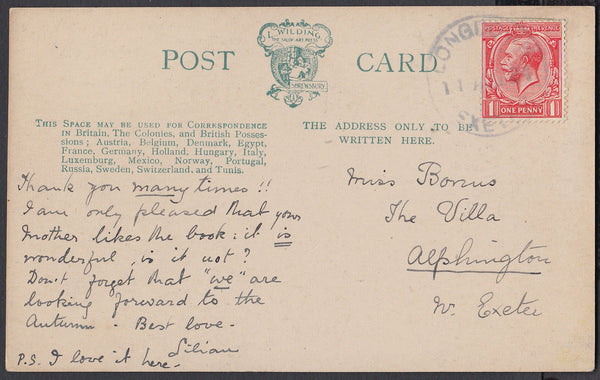 L. WILDING
SHREWSBURY
POST CARD
THIS SPACE MAY BE USED FOR CORRESPONDENCE
IN BRITAIN, THE COLONIES, AND BRITISH POSSES-
SIONS; AUSTRIA, BELGIUM, DENMARK, EGYPT,
FRANCE, GERMANY, HOLLAND, HUNGARY, ITALY,
LUXEMBURG, MEXICO, NORWAY, PORTUGAL,
RUSSIA, SWEDEN, SWITZERLAND, AND TUNIS.
Thank you many times!!
I am only pleased that your
Mother likes the book: it is
wonderful, is it not?
Don't forget that "we" are
looking forward to the
Autumn - Best love -
Lilian
P.S. I love it here.
THE ADDRESS ONLY TO BE
WRITTEN HERE.
Miss Bonus
The Villa
Alphington
Nr. Exeter
1 ONE PENNY 1